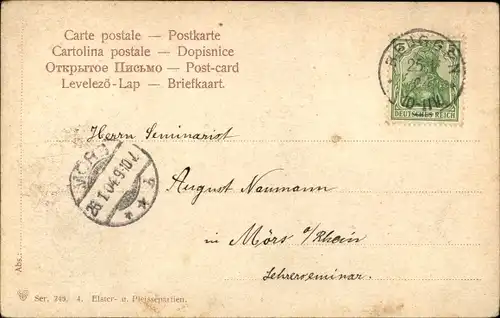 Carte postale — Postkarte
Cartolina postale — Dopisnice
Открытое Письмо — Post-card
Levelező-Lap — Briefkaart.
DEUTSCHES REICH
Herrn Seminarist
MÖRS
26.1.04.9-10V.
August Naumann
in Mörs a/Rhein
Lehrerseminar.
Abs.:
Ser. 249. 4. Elster- u. Pleissenatalien.